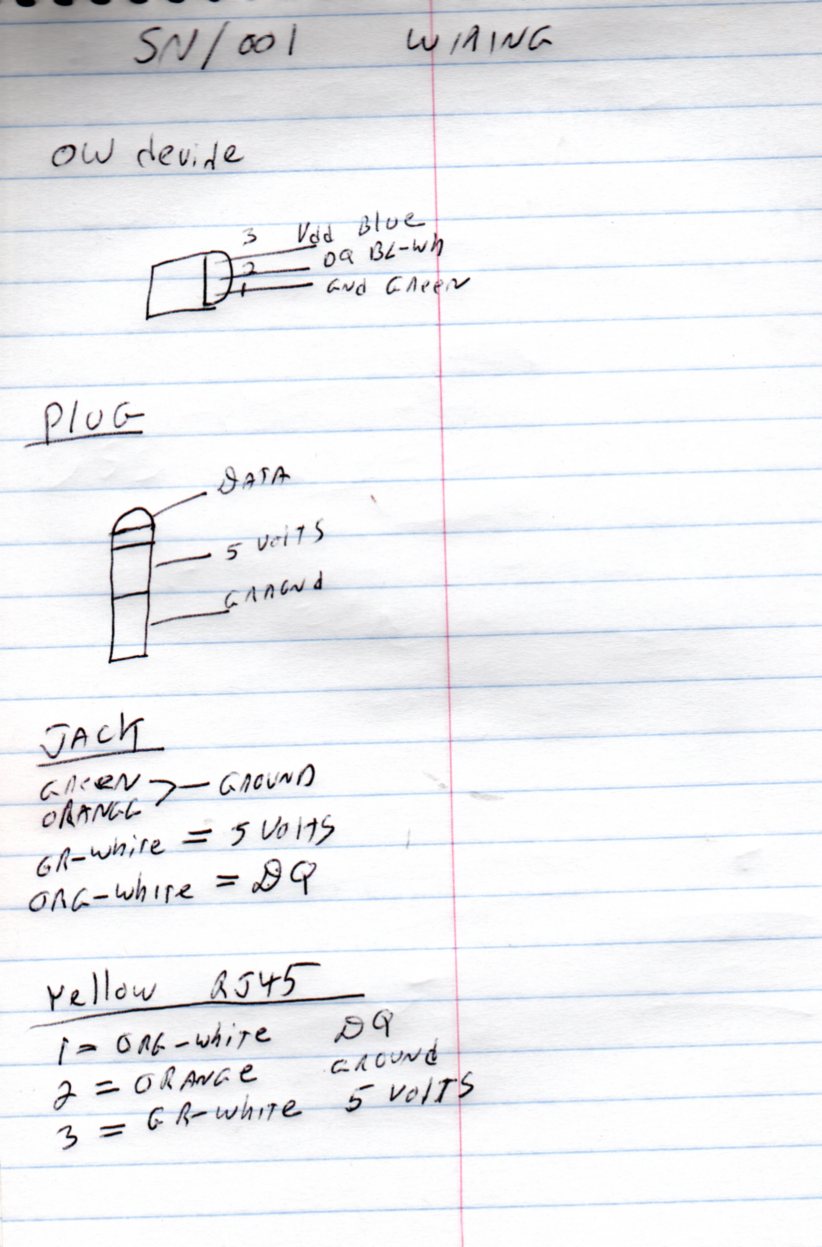 SN/001 WIRING
OW devide
3 Vdd Blue
2 DQ BL-Wh
1 Gnd GReen
PlUG
DATA
5 VolTS
GRAGNd
JACK
GREEN > — GROUND
ORANGE
GR-white = 5 VOltS
ORG-white = DQ
Yellow RJ45
1 = ORG-white DQ
2 = ORANGe GROUNd
3 = GR-white 5 VolTS